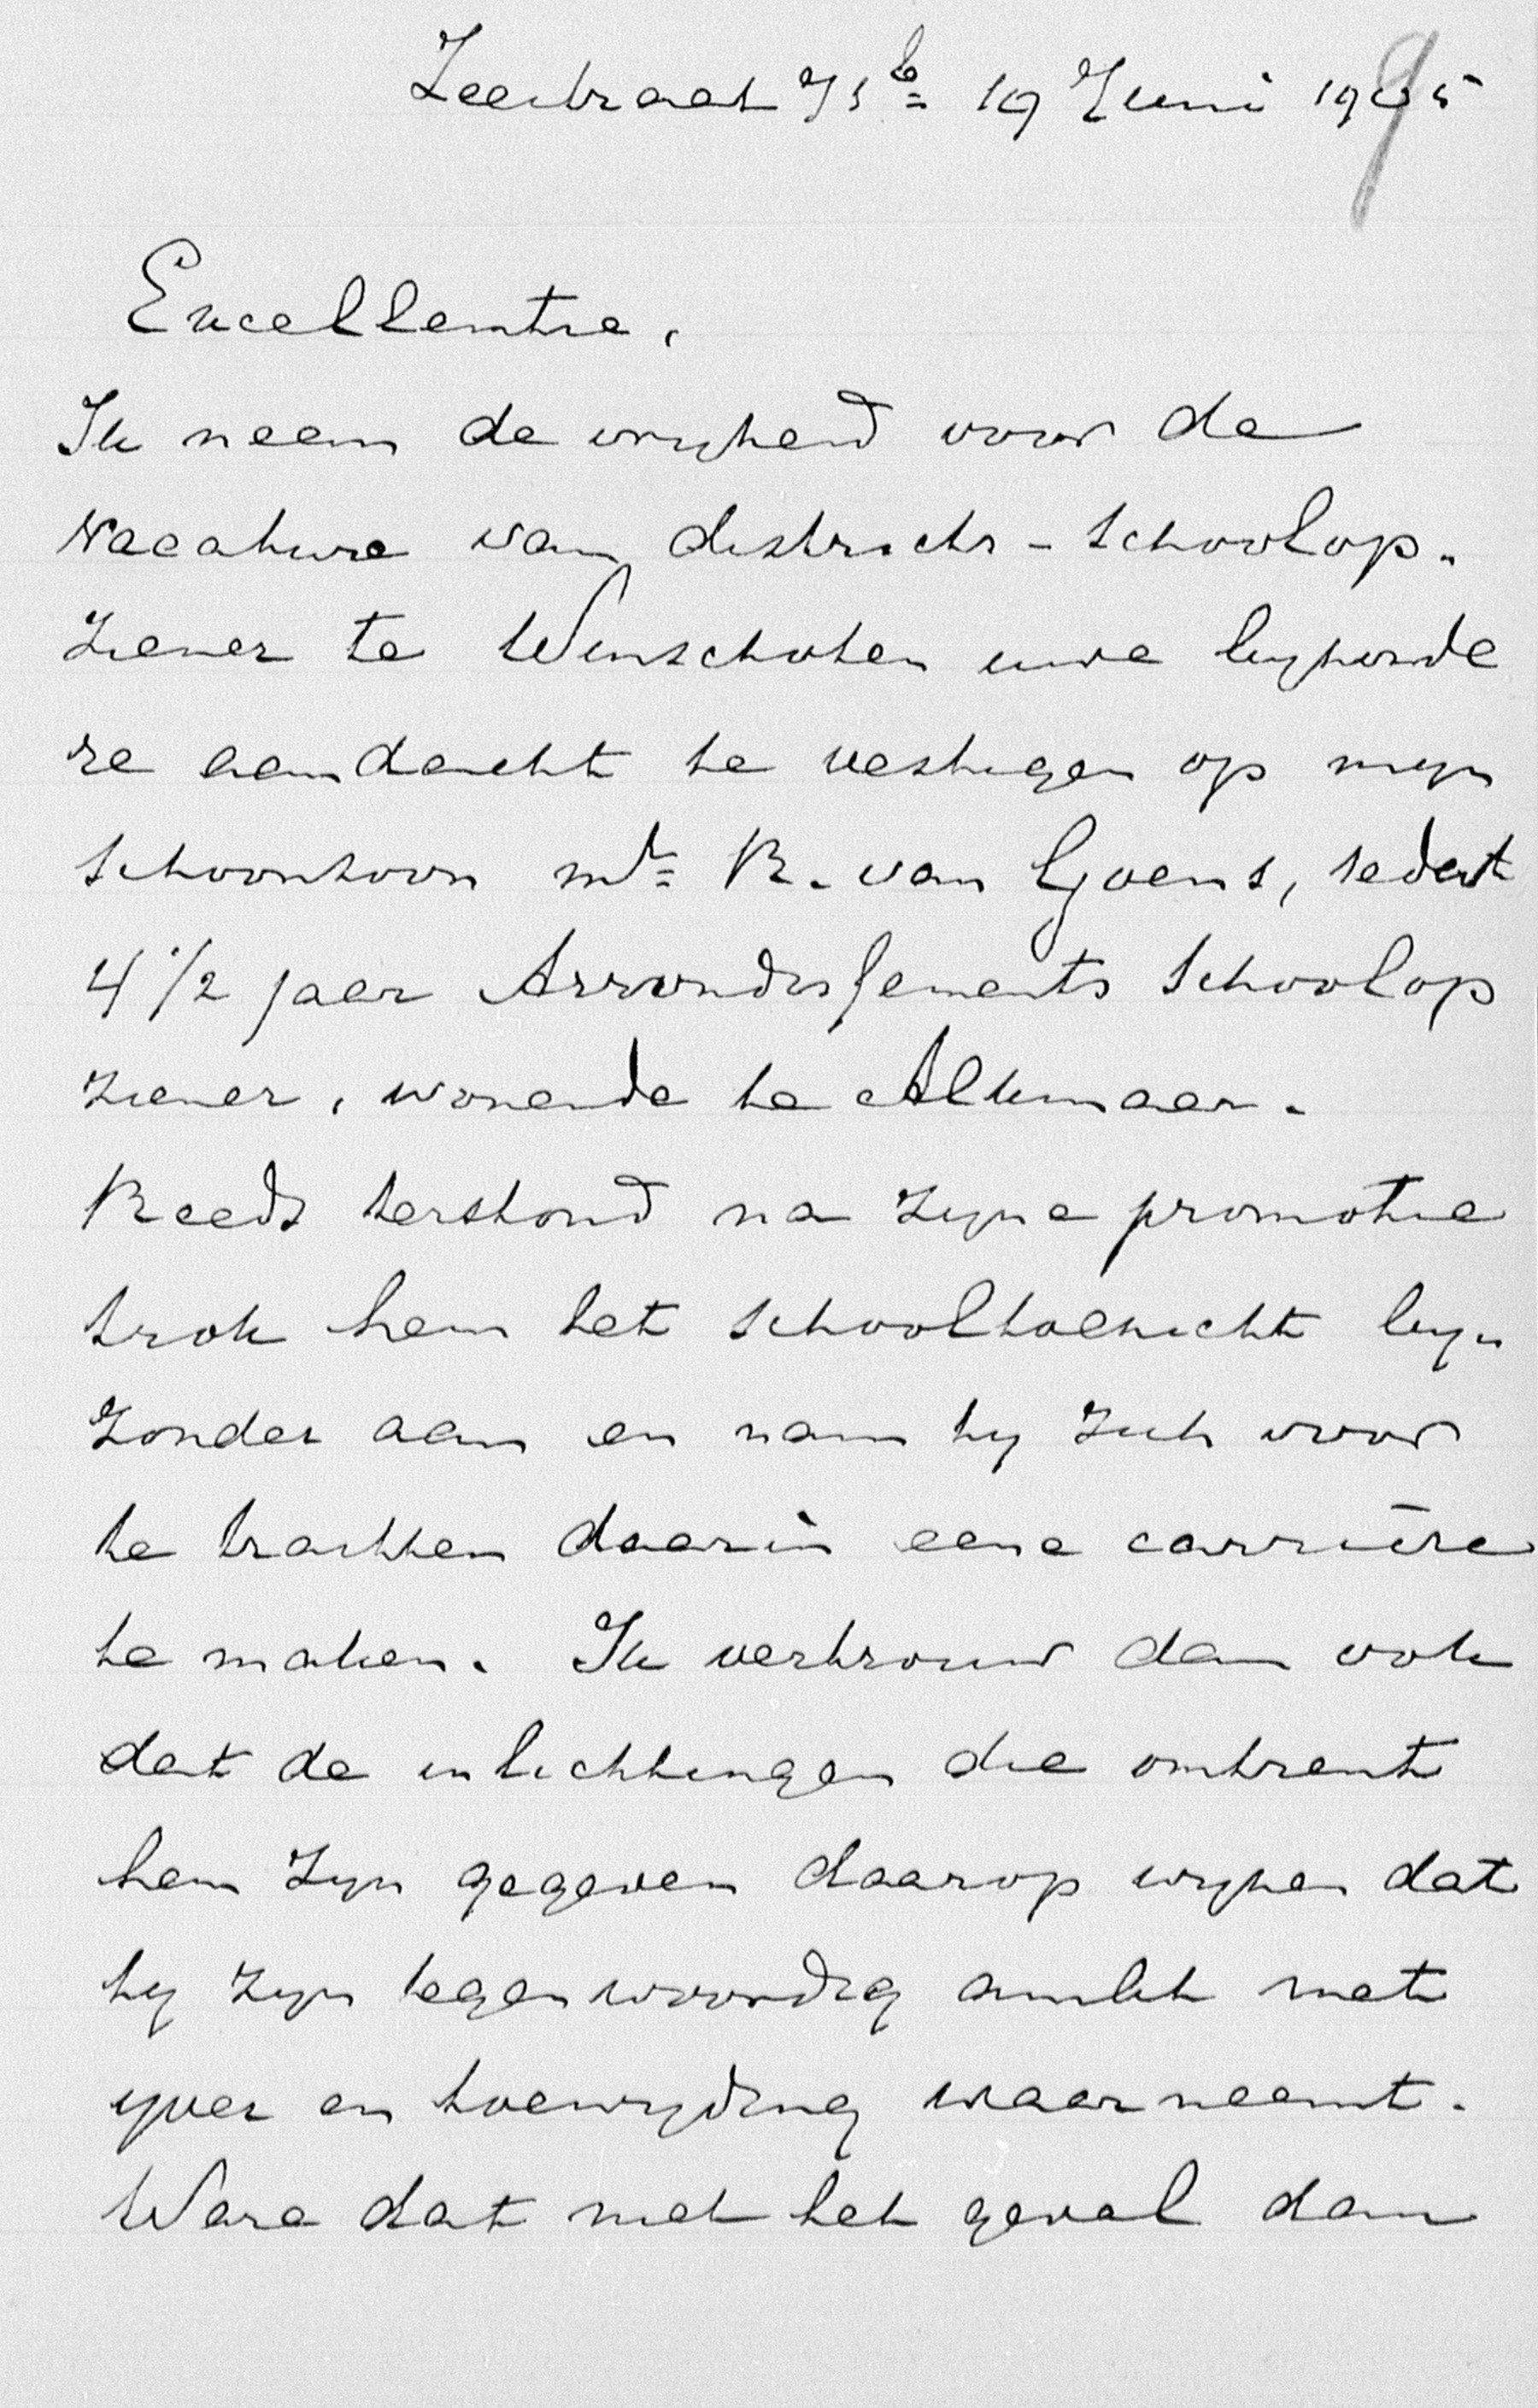 Zeestraat 71b 19 Juni 1905
9
Excellentie,
Ik neem de vrijheid voor de
vacature van districts-schoolop-
ziener te Winschoten uwe bijzonde
re aandacht te vestigen op mijn
schoonzoon mr R. van Goens, sedert
4 1/2 jaar Arrondissements Schoolop
ziener, wonende te Alkmaar.
Reeds terstond na zijne promotie
trok hem het schooltoezicht bij-
zonder aan en nam hij zich voor
te trachten daarin eene carrière
te maken. Ik vertrouw dan ook
dat de inlichtingen die omtrent
hem zijn gegeven daarop wijzen dat
hij zijn tegenwoordig ambt met
ijver en toewijding waarneemt.
Ware dat niet het geval dan